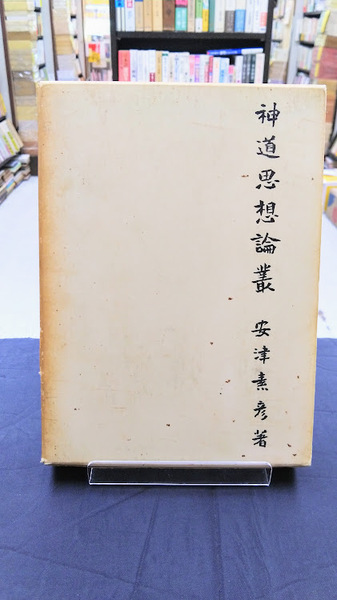 神道思想論叢 安津素彦著